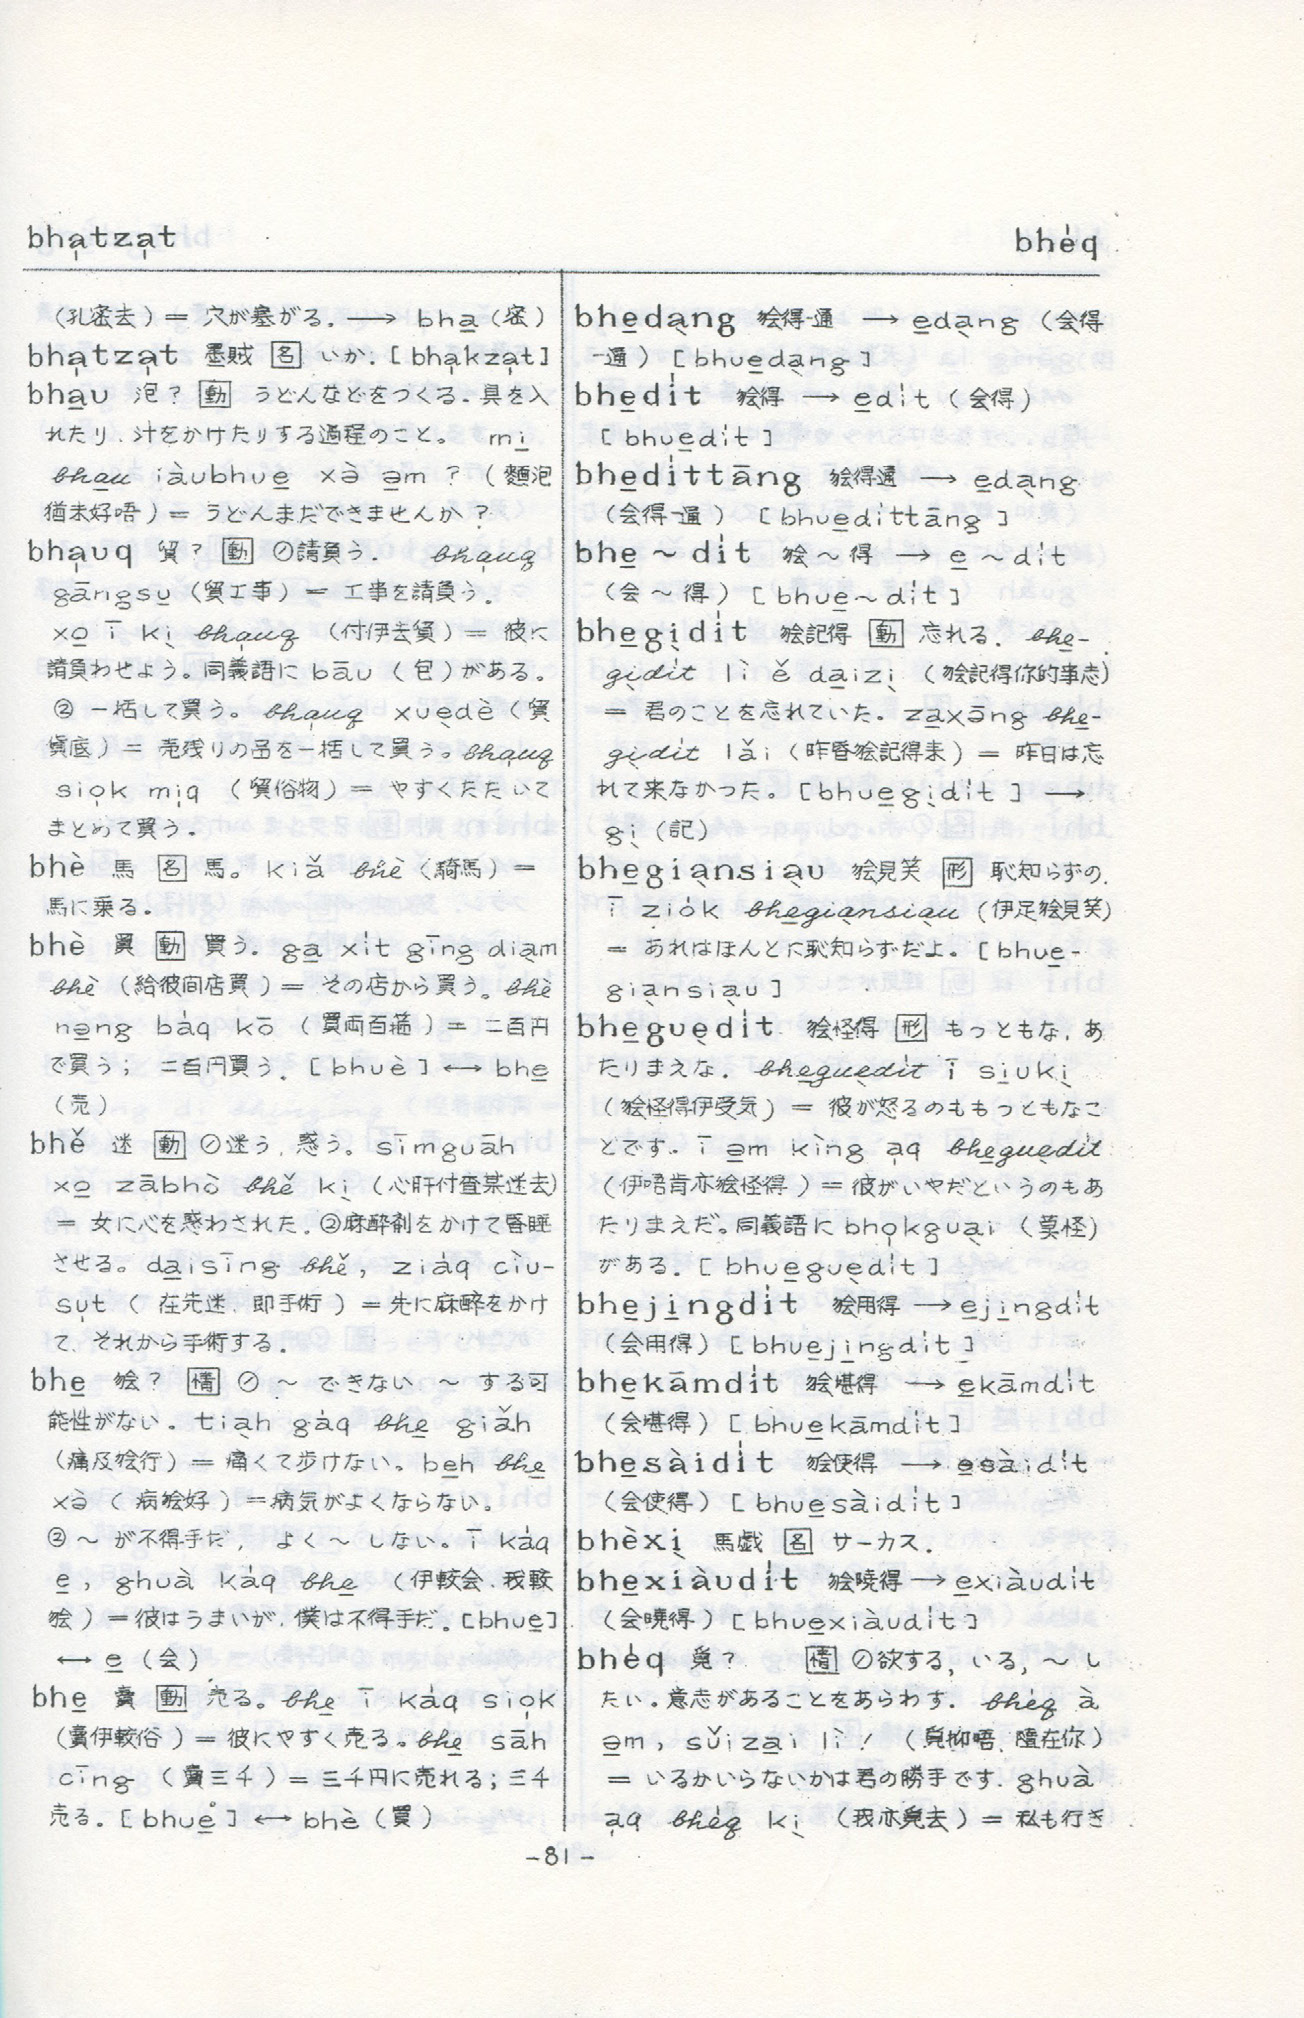 bha̩tza̩t
bhe̍q
(孔密去)＝穴が塞がる.―→ bha̱(密)
bha̩tza̩t 墨賊 [名] いか.[bha̩kza̩t]
bha̱u 泡? [動] うどんなどをつくる.具を入
れたり、汁をかけたりする過程のこと。 mi̱
bha̱u iàubhue̱ xə̀ ə̱m ? (麵泡
猶未好唔)＝うどんまだできませんか?
bha̩uq 貿? [動] ⊘請負う. bha̩uq
gāngsu̱ (貿工事)＝工事を請負う.
xo̱ ī ki̩ bha̩uq (付伊去貿)＝彼に
請負わせよう。同義語に bāu (包)がある。
② 一括して買う。bha̩uq xue̩dè(貿
貨底)＝売残りの品を一括して買う。bha̩uq
sio̩k mi̩q (貿俗物)＝やすくたたいて
まとめて買う。
bhè 馬 [名] 馬。kiǎ bhè(騎馬)＝
馬に乗る.
bhè 買 [動] 買う. ga̱ xi̍t gīng dia̩m
bhè (給彼間店買)＝その店から買う。bhè
nə̱ng ba̍q kō (買両百箍)＝二百円
で買う; 二百円買う. [bhuè]←→ bhe̱
(売)
bhě 迷 [動] ⊘迷う、惑う。sīmguāh
xo̱ zābhò bhě ki̩ (心肝付查某迷去)
＝女に心を惑わされた.②麻酔剤をかけて昏睡
させる。da̱isīng bhě, zia̍q cìu-
su̩t (在先迷、即手術)＝先に麻酔をかけ
て、それから手術する.
bhe̱ 𣍐? [情] ⊘ ～ できない ～ する可
能性がない. tia̩h ga̍q bhe̱ giǎh
(痛及𣍐行)＝痛くて歩けない。be̱h bhe̱
xə̀ (病𣍐好)＝病気がよくならない。
②～が不得手だ, よく～しない。ī ka̍q
e̱, ghuà ka̍q bhe̱ (伊較会、我較
𣍐)＝彼はうまいが、僕は不得手だ.[bhue̱]
←→ e̱ (会)
bhe̱ 賣 [動] 売る。bhe̱ ī ka̍q sio̩k
(賣伊較俗)＝彼にやすく売る。bhe̱ sāh
cīng (賣三千)＝三千円に売れる; 三千
売る。[bhue̱]←→ bhè(買)
bhe̱da̩ng 𣍐得通 ―→ e̱da̩ng (会得
通)[bhue̱da̩ng]
bhe̱di̍t 𣍐得 ―→ e̱di̍t (会得)
[bhue̱di̍t]
bhe̱di̍ttāng 𣍐得通 ―→ e̱da̩ng
(会得通) [bhue̱di̍ttāng]
bhe̱ ～ di̍t 𣍐～得 ―→ e̱ ～ di̍t
(会～得)[bhue̱～di̍t]
bhe̱gi̩di̍t 𣍐記得 [動] 忘れる. bhe̱-
gi̩di̍t lì ě da̱izi̩ (𣍐記得你的事志)
＝君のことを忘れていた。za̱xə̄ng bhe̱-
gi̩di̍t lǎi (昨昏𣍐記得来)＝昨日は忘
れて来なかった。[bhue̱gi̩di̍t] ―→
gi̩ (記)
bhe̱gia̩nsia̩u 𣍐見笑 [形] 恥知らずの.
ī zio̍k bhe̱gia̩nsia̩u (伊足𣍐見笑)
＝あれはほんとに恥知らずだよ。[bhue̱-
gia̩nsia̩u]
bhe̱gue̩di̍t 𣍐怪得 [形] もっともな, あ
たりまえな. bhe̱gue̩di̍t ī si̱uki̩
(𣍐怪得伊受気)＝彼が怒るのももっともなこ
とです. ī ə̱m kìng a̩q bhe̱gue̩di̍t
(伊唔肯亦𣍐怪得)＝彼がいやだというのもあ
たりまえだ。同義語に bho̩kgua̩i (莫怪)
がある. [bhue̱gue̩di̍t]
bhe̱ji̱ngdi̍t 𣍐用得 ―→ e̱ji̱ngdi̍t
(会用得)[bhue̱ji̱ngdi̍t]
bhe̱kāmdi̍t 𣍐堪得 ―→ e̱kāmdi̍t
(会堪得)[bhue̱kāmdi̍t]
bhe̱sàidi̍t 𣍐使得 ―→ e̱sàidi̍t
(会使得)[bhue̱sàidi̍t]
bhèxi̩ 馬戯 [名] サーカス.
bhe̱xiàudi̍t 𣍐曉得 ―→ e̱xiàudi̍t
(会曉得)[bhue̱xiàudi̍t]
bhe̍q 覓? [情] ⊘欲する, いる, ～し
たい. 意志があることをあらわす. bhe̍q à
ə̱m, sǔiza̱i lì! (覓抑唔、隨在你)
＝いるかいらないかは君の勝手です. ghuà
a̩q bhe̍q ki̩ (我亦覓去)＝私も行き
-81-